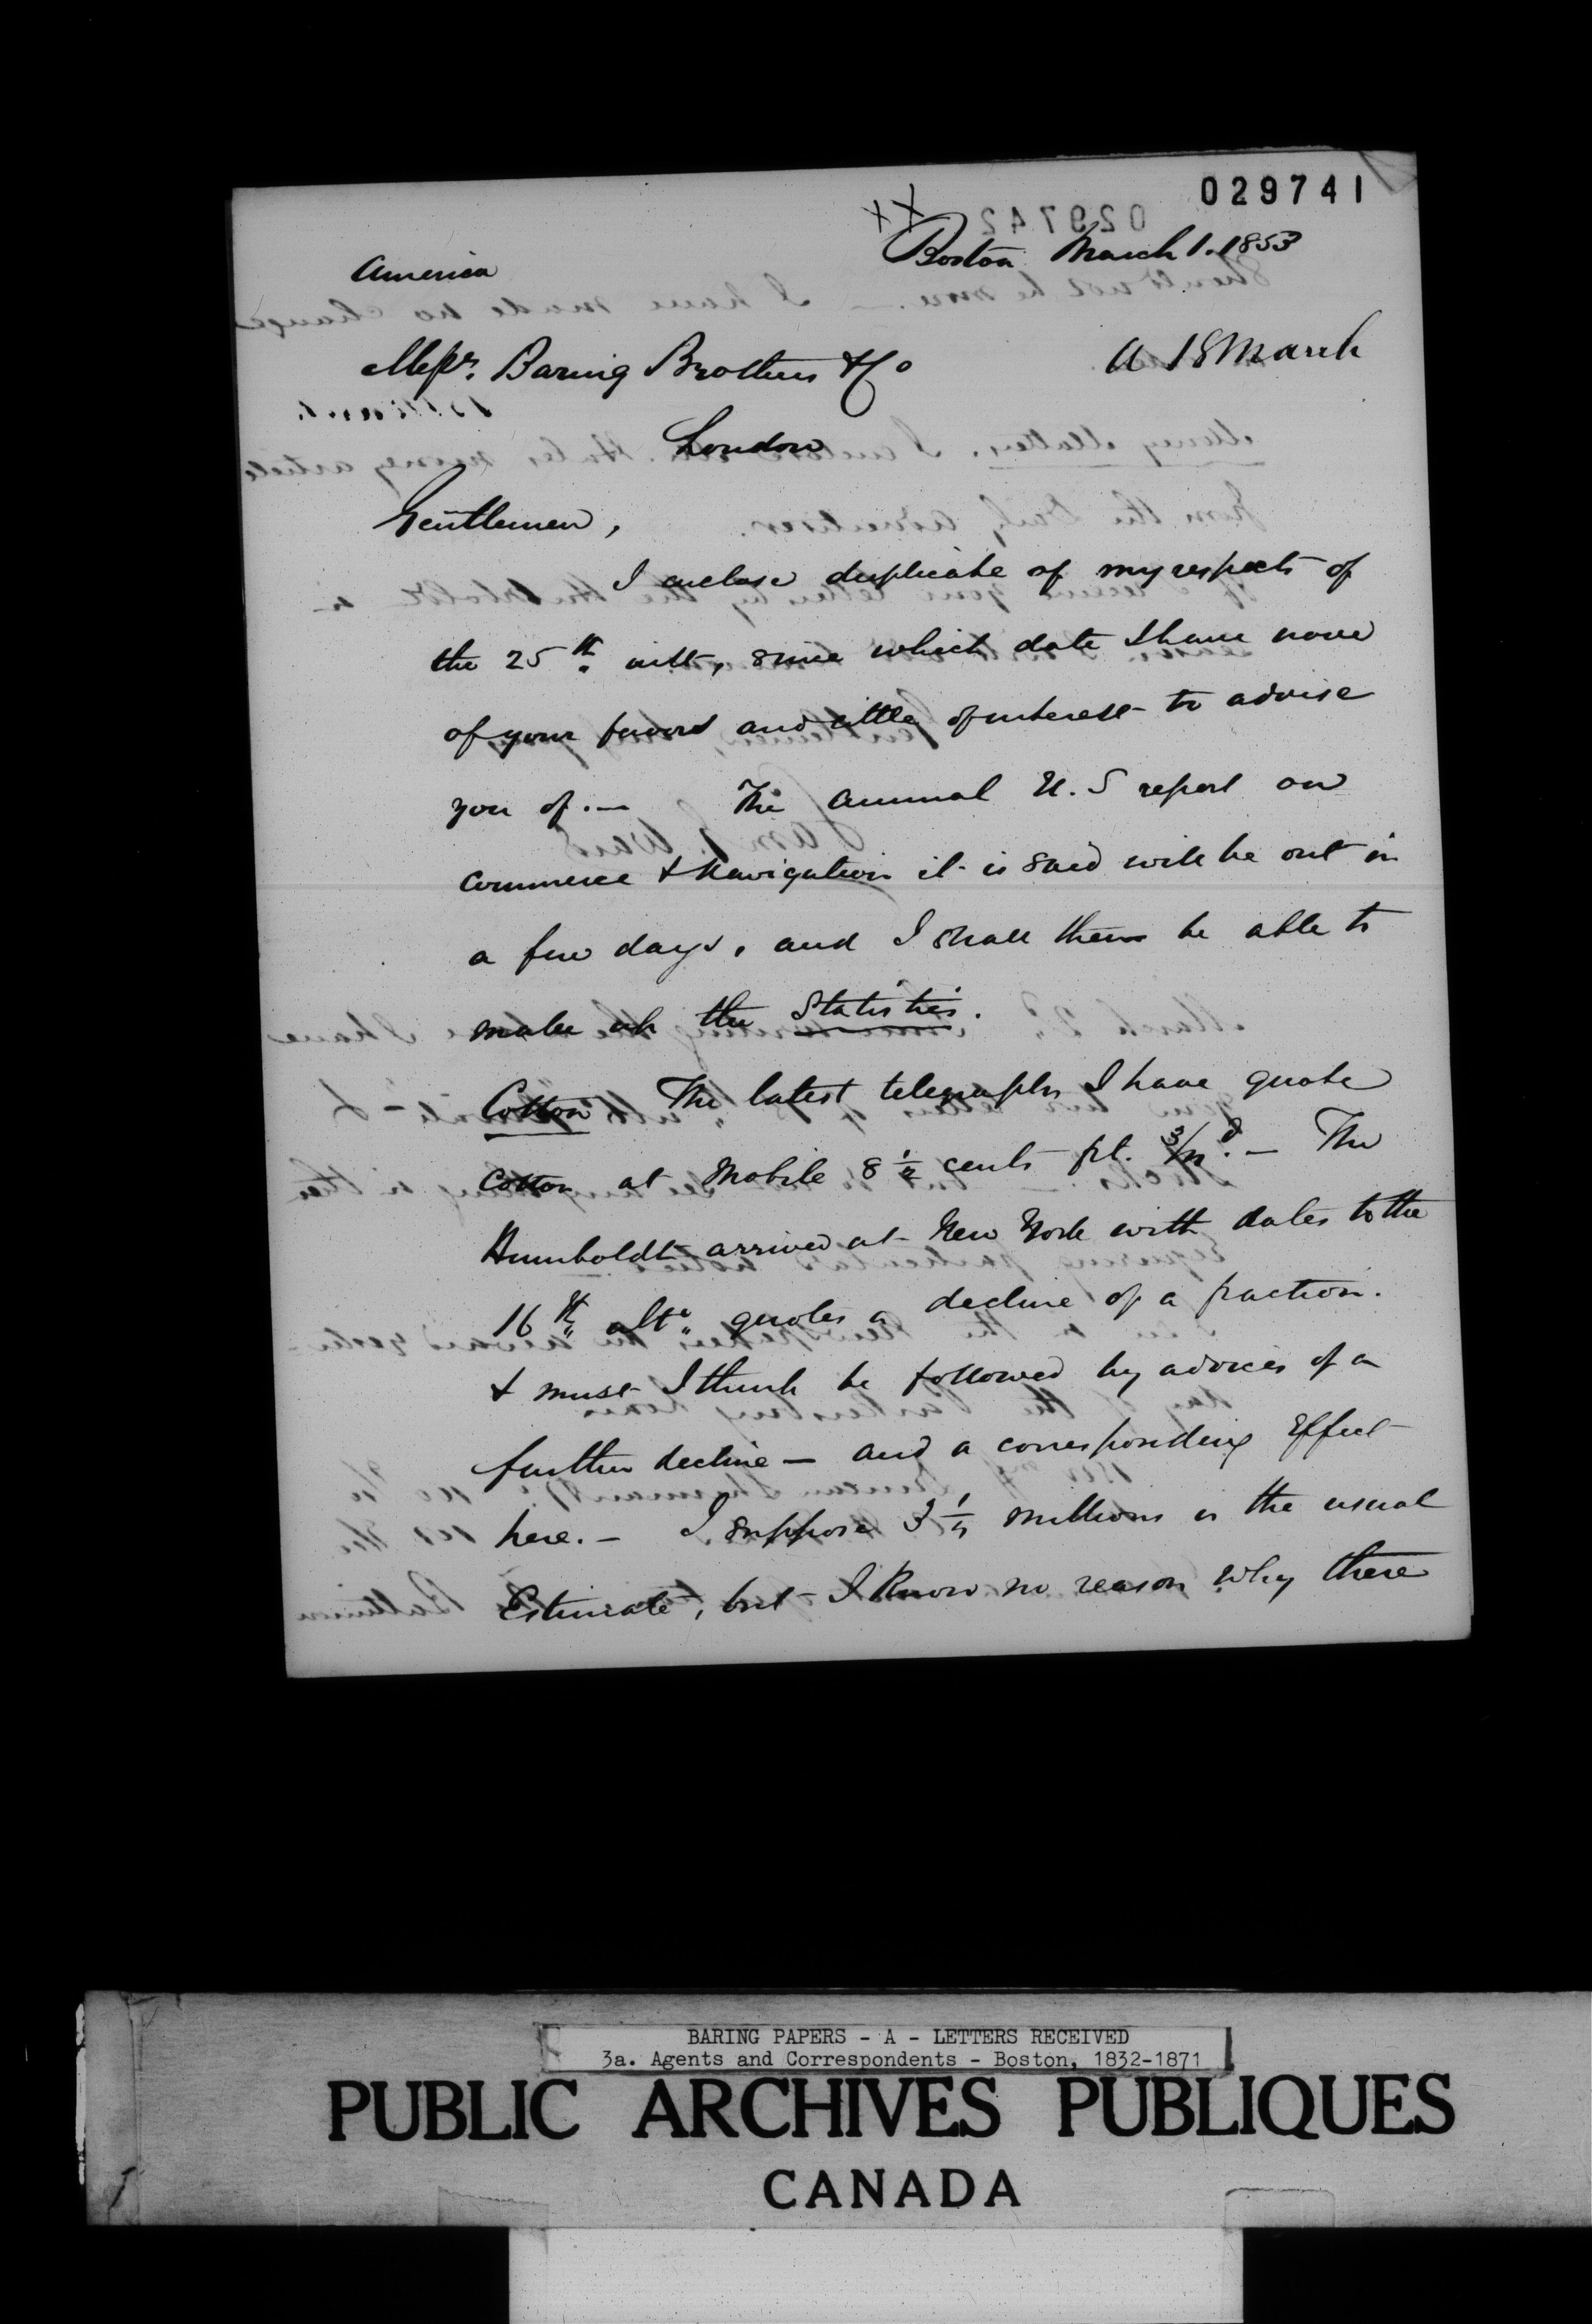 029741
XX
Boston March 1. 1853
America
Messrs. Baring Brothers & Co
a 18 March
London
Gentlemen,
I enclose duplicate of my respects of
the 25th. ult, since which date I have none
of your favors and little of interest to advise
you of. — The annual U.S report on
Commerce & Navigation it is said will be out in
a few days, and I shall then be able to
make up the Statistics.
Cotton The latest telegraphs I have quote
Cotton at Mobile 8 1/2 cents frt. d. — The
Humboldt arrived at New York with dates to the
16th ulto quotes a decline of a fraction.
& must I think be followed by advices of a
further decline — and a corresponding Effect
here. — I suppose 3 1/4 millions is the usual
Estimate, but I know no reason why there
BARING PAPERS - A - LETTERS RECEIVED
3a. Agents and Correspondents - Boston, 1832-1871
PUBLIC ARCHIVES PUBLIQUES
CANADA